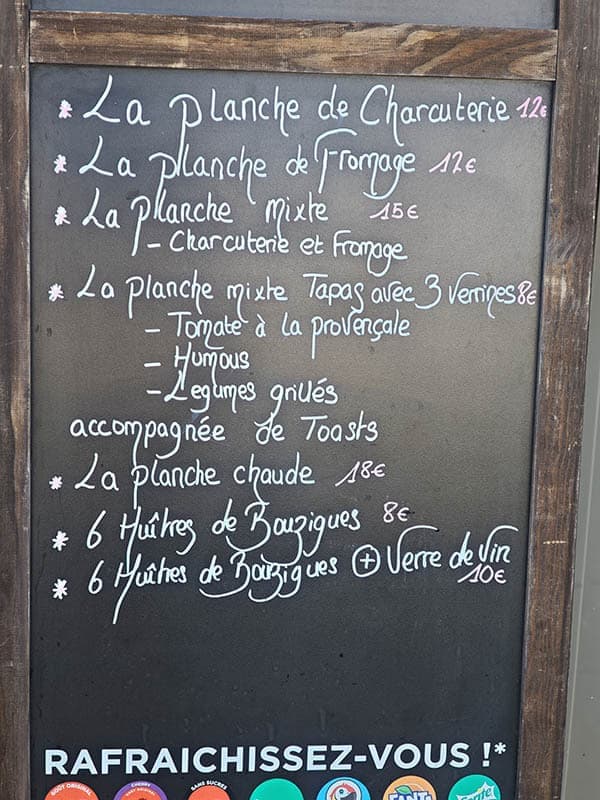 * La planche de Charcuterie 12€
* La planche de Fromage 12€
* La planche mixte 15€
- Charcuterie et Fromage
* La planche mixte Tapas avec 3 Verrines 8€
- Tomate à la provençale
- Humous
- Légumes grillés
accompagnée de Toasts
* La planche chaude 18€
* 6 Huîtres de Bouzigues 8€
* 6 Huîtres de Bouzigues + Verre de Vin
10€
RAFRAICHISSEZ-VOUS !*
GOÛT ORIGINAL CHERRY SANS SUCRES